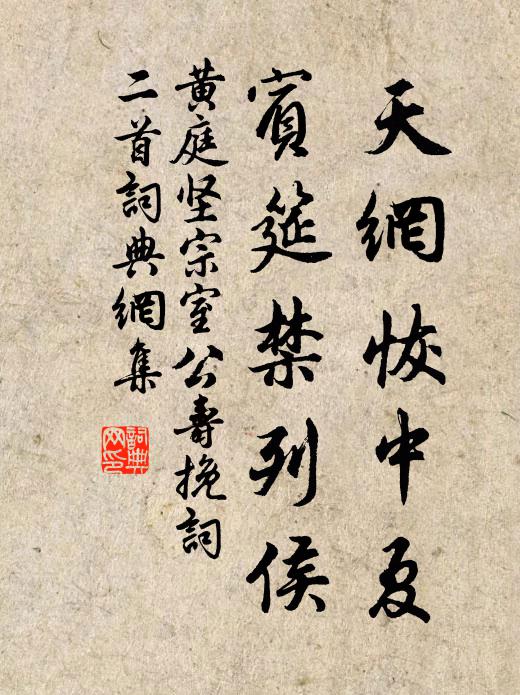 天網恢中夏
賓筵禁列侯
黄庭坚宗室公壽挽詞
二首詞典網集
詞典网印